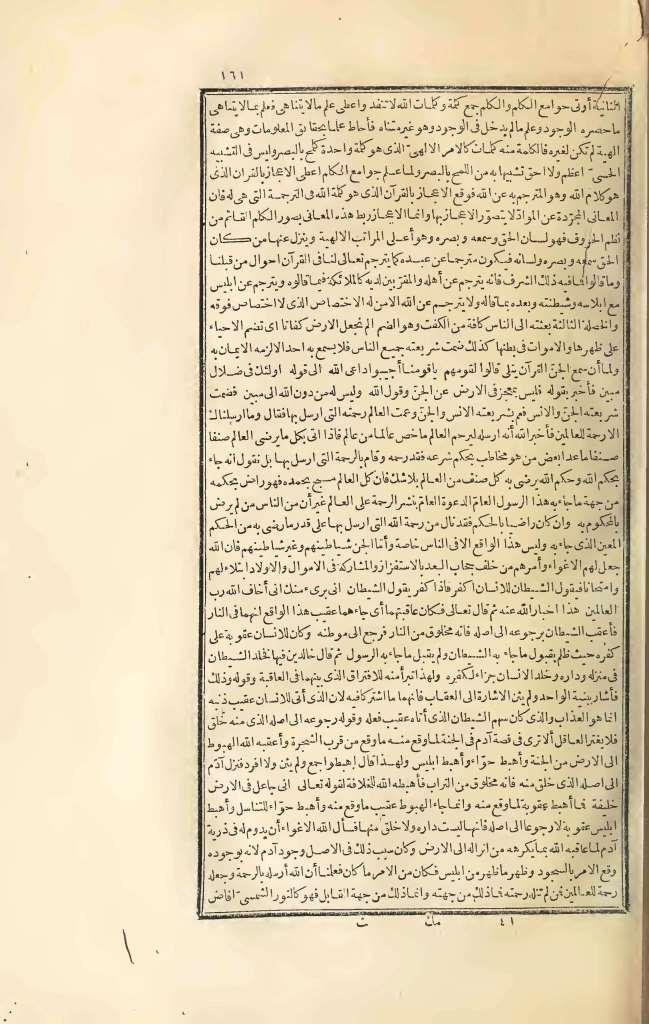 ١٦١
الثانية أوتى جوامع الكلم والكلم جمع كلمة وكلمات الله لا تنفد واعطى علم ما لا يتناهى فعلم بما لا يتناهى
ما حصره الوجود وعلم ما لم يدخل فى الوجود وهو غير متناه فأحاط علما بحقائق المعلومات وهى صفة
الهية لم تكن لغيره فالكلمة منه كلمات كالامر الالهىّ الذى هو كلمة واحدة كلمح بالبصر وليس فى التشبيه
الحسىّ أعظم ولا احق تشبيها به من اللمح بالبصر ولما علم جوامع الكلم اعطى الاعجاز بالقرآن الذى
هو كلام الله وهو المترجم به عن الله فوقع الاعجاز بالقرآن الذى هو كلمة الله فى الترجمة التى هى له فان
المعانى المجرّدة عن الموادّ لا يتصوّر الاعجاز بها وانما الاعجاز ربط هذه المعانى بصور الكلم القائم من
نظم الحروف فهو لسان الحق وسمعه وبصره وهو أعلى المراتب الالهية وينزل عنها من كان
الحق سمعه وبصره ولسانه فيكون مترجما عن عبده كما يترجم تعالى لنا فى القرآن احوال من قبلنا
وما قالوا فما فيه ذلك الشرف فانه يترجم عن أهله والمقرّبين لديه كالملائكة فيما قالوه ويترجم عن ابليس
مع ابلاسه وشيطنته وبعده بما قاله ولا يترجم عن الله الا من له الاختصاص الذى لا اختصاص فوقه
والخصلة الثالثة بعثته الى الناس كافة من الكفت وهو الضم الم نجعل الارض كفاتا اى تضم الاحياء
على ظهرها والاموات فى بطنها كذلك ضمت شريعته جميع الناس فلا يسمع به احد الا لزمه الايمان به
ولما أن سمع الجنّ القرآن يتلى قالوا لقومهم ياقومنا أجيبوا داعى الله الى قوله اولئك فى ضلال
مبين فأخبر بقوله فليس بمعجز فى الارض عن الجنّ وقول الله وليس له من دون الله الى مبين فضمت
شريعته الجنّ والانس فعم بشريعته الانس والجنّ وعمت العالم رحمته التى ارسل بها فقال وما ارسلناك
الا رحمة للعالمين فأخبر الله أنه ارسله ليرحم العالم ما خص عالما من عالم فاذا اتى بكل ما يرضى العالم صنفا
صنفا ما عدا بعض من هو مخاطب بحكم شرعه فقد رحمه وقام بالرحمة التى ارسل بها بل نقول انه جاء
بحكم الله وحكم الله رضى به كل صنف من العالم بلا شك فان كل العالم مسبح بحمده فهو راض بحكمه
من جهة ما جاء به هذا الرسول العام الدعوة العام بنشر الرحمة على العالم غير أن من الناس من لم يرض
بالمحكوم به وان كان راضيا بالحكم فقد نال من رحمة الله التى ارسل بها على قدر ما رضى به من الحكم
المعين الذى جاء به وليس هذا الواقع الا فى الناس خاصة وأما الجن شياطينهم وغير شياطينهم فان الله
جعل لهم الاغواء وأمرهم من خلف حجاب البعد بالاستفزاز والمشاركة فى الاموال والاولاد ابتلاء لهم
وامتحانا فيقول الشيطان للانسان اكفر فاذا كفر يقول الشيطان انى برىء منك انى أخاف الله رب
العالمين هذا اخبار الله عنه ثم قال تعالى فكان عاقبتهما أى جاءهما عقيب هذا الواقع انهما فى النار
فأعقب الشيطان برجوعه الى اصله فانه مخلوق من النار فرجع الى موطنه وكان للانسان عقوبة على
كفره حيث ظلم بقبول ما جاء به الشيطان ولم يقبل ما جاء به الرسول ثم قال خالدين فيها فخلد الشيطان
فى منزله وداره وخلد الانسان جزاء لكفره ولهذا تبرأ منه للافتراق الذى بينهما فى العاقبة وقوله وذلك
فأشار ببنية الواحد ولم يثن الاشارة الى العقاب فانهما ما اشتركا فيه لان الذى أتى للانسان عقيب ذنبه
انما هو العذاب والذى كان سهم الشيطان الذى أتاه عقيب فعله وقوله رجوعه الى اصله الذى منه خلق
فلا يغتر العاقل ألا ترى فى قصة آدم فى الجنة لما وقع منه ما وقع من قرب الشجرة وأعقبه الله الهبوط
الى الارض من الجنة وأهبط حوّاء وأهبط ابليس ولهذا قال اهبطوا جمع ولم يثن ولا افرد فنزل آدم
الى اصله الذى خلق منه فانه مخلوق من التراب فأهبطه الله للخلافة لقوله تعالى انى جاعل فى الارض
خليفة فما أهبط عقوبة لما وقع منه وانما جاء الهبوط عقيب ما وقع منه وأهبط حوّاء للتناسل وأهبط
ابليس عقوبة لا رجوعا الى اصله فانها ليست داره ولا خلق منها فسأل الله الاغواء أن يدوم له فى ذرية
آدم لما عاقبه الله بما يكرهه من انزاله الى الارض وكان سبب ذلك فى الاصل وجود آدم لانه بوجوده
وقع الامر بالسجود وظهر ما ظهر من ابليس فكان من الامر ما كان فعلمنا أن الله أرسله بالرحمة وجعله
رحمة للعالمين فمن لم تنله رحمته فما ذلك من جهته وانما ذلك من جهة القابل فهو كالنور الشمسىّ افاض
٤١ مك ت